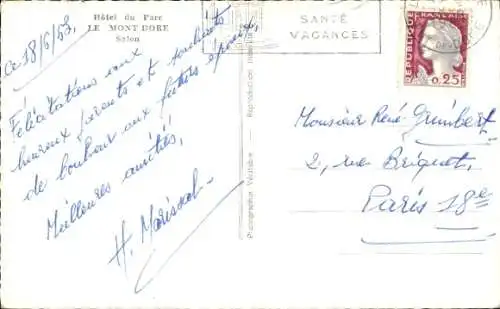 Hôtel du Parc
LE MONT DORE
Salon
Ce 18/6/63,
Félicitations aux
heureux parents et souhaits
de bonheur aux futurs époux,
Meilleures amitiés,
H. Moriscal
Photographie Véritable - Reproduction
SANTÉ
VACANCES
REPUBLIQUE FRANÇAISE
0,25
Monsieur René Grimbert
2, rue Briquet,
Paris 18e